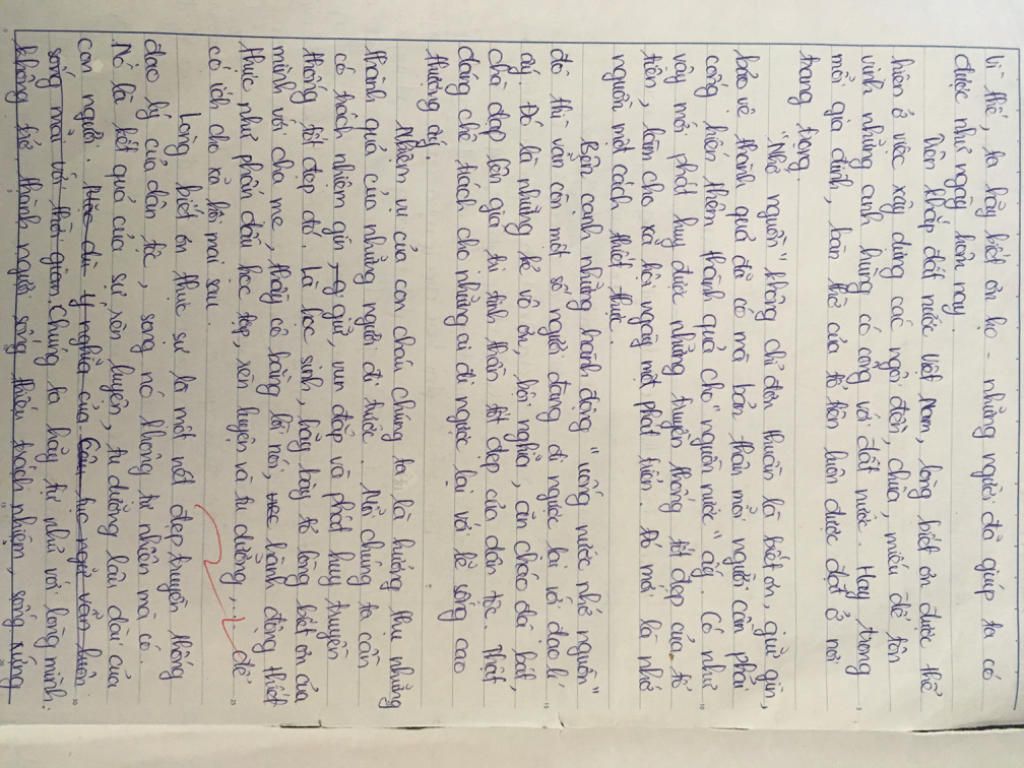 Vì thế, ta hãy biết ơn họ - những người đã giúp ta có
được như ngày hôm nay.
Trên khắp đất nước Việt Nam, lòng biết ơn được thể
hiện ở việc xây dựng các ngôi đền, chùa, miếu để tôn
vinh những anh hùng có công với đất nước. Hay trong
mỗi gia đình, bàn thờ của tổ tiên luôn được đặt ở nơi
trang trọng.
"Nhớ nguồn" không chỉ đơn thuần là biết ơn, giữ gìn,
bảo vệ thành quả đã có mà bản thân mỗi người cần phải
cống hiến thêm thành quả cho "nguồn nước" ấy. Có như
vậy mới phát huy được những truyền thống tốt đẹp của tổ
tiên, làm cho xã hội ngày một phát triển. Đó mới là nhớ
nguồn một cách thiết thực.
Bên cạnh những hành động "uống nước nhớ nguồn"
đó thì vẫn còn một số người đang đi ngược lại với đạo lí
ấy. Đó là những kẻ vô ơn, bội nghĩa, ăn cháo đá bát,
chà đạp lên giá trị tinh thần tốt đẹp của dân tộc. Thật
đáng chê trách cho những ai đi ngược lại với lẽ sống cao
thượng ấy.
Nhiệm vụ của con cháu chúng ta là hưởng thụ những
thành quả của những người đi trước. Mỗi chúng ta cần
có trách nhiệm gìn giữ, vun đắp và phát huy truyền
thống tốt đẹp đó. Là học sinh, hãy bày tỏ lòng biết ơn của
mình với cha mẹ, thầy cô bằng lời nói, hành động thiết
thực như phấn đấu học tập, rèn luyện và tu dưỡng,... để
có ích cho xã hội mai sau.
Lòng biết ơn thực sự là một nét đẹp truyền thống
đạo lý của dân tộc, song nó không tự nhiên mà có.
Nó là kết quả của sự rèn luyện, tu dưỡng lâu dài của
con người. ý nghĩa của câu tục ngữ vẫn luôn
sống mãi với thời gian. Chúng ta hãy tự nhủ với lòng mình:
không trở thành người sống thiếu trách nhiệm, sống xứng